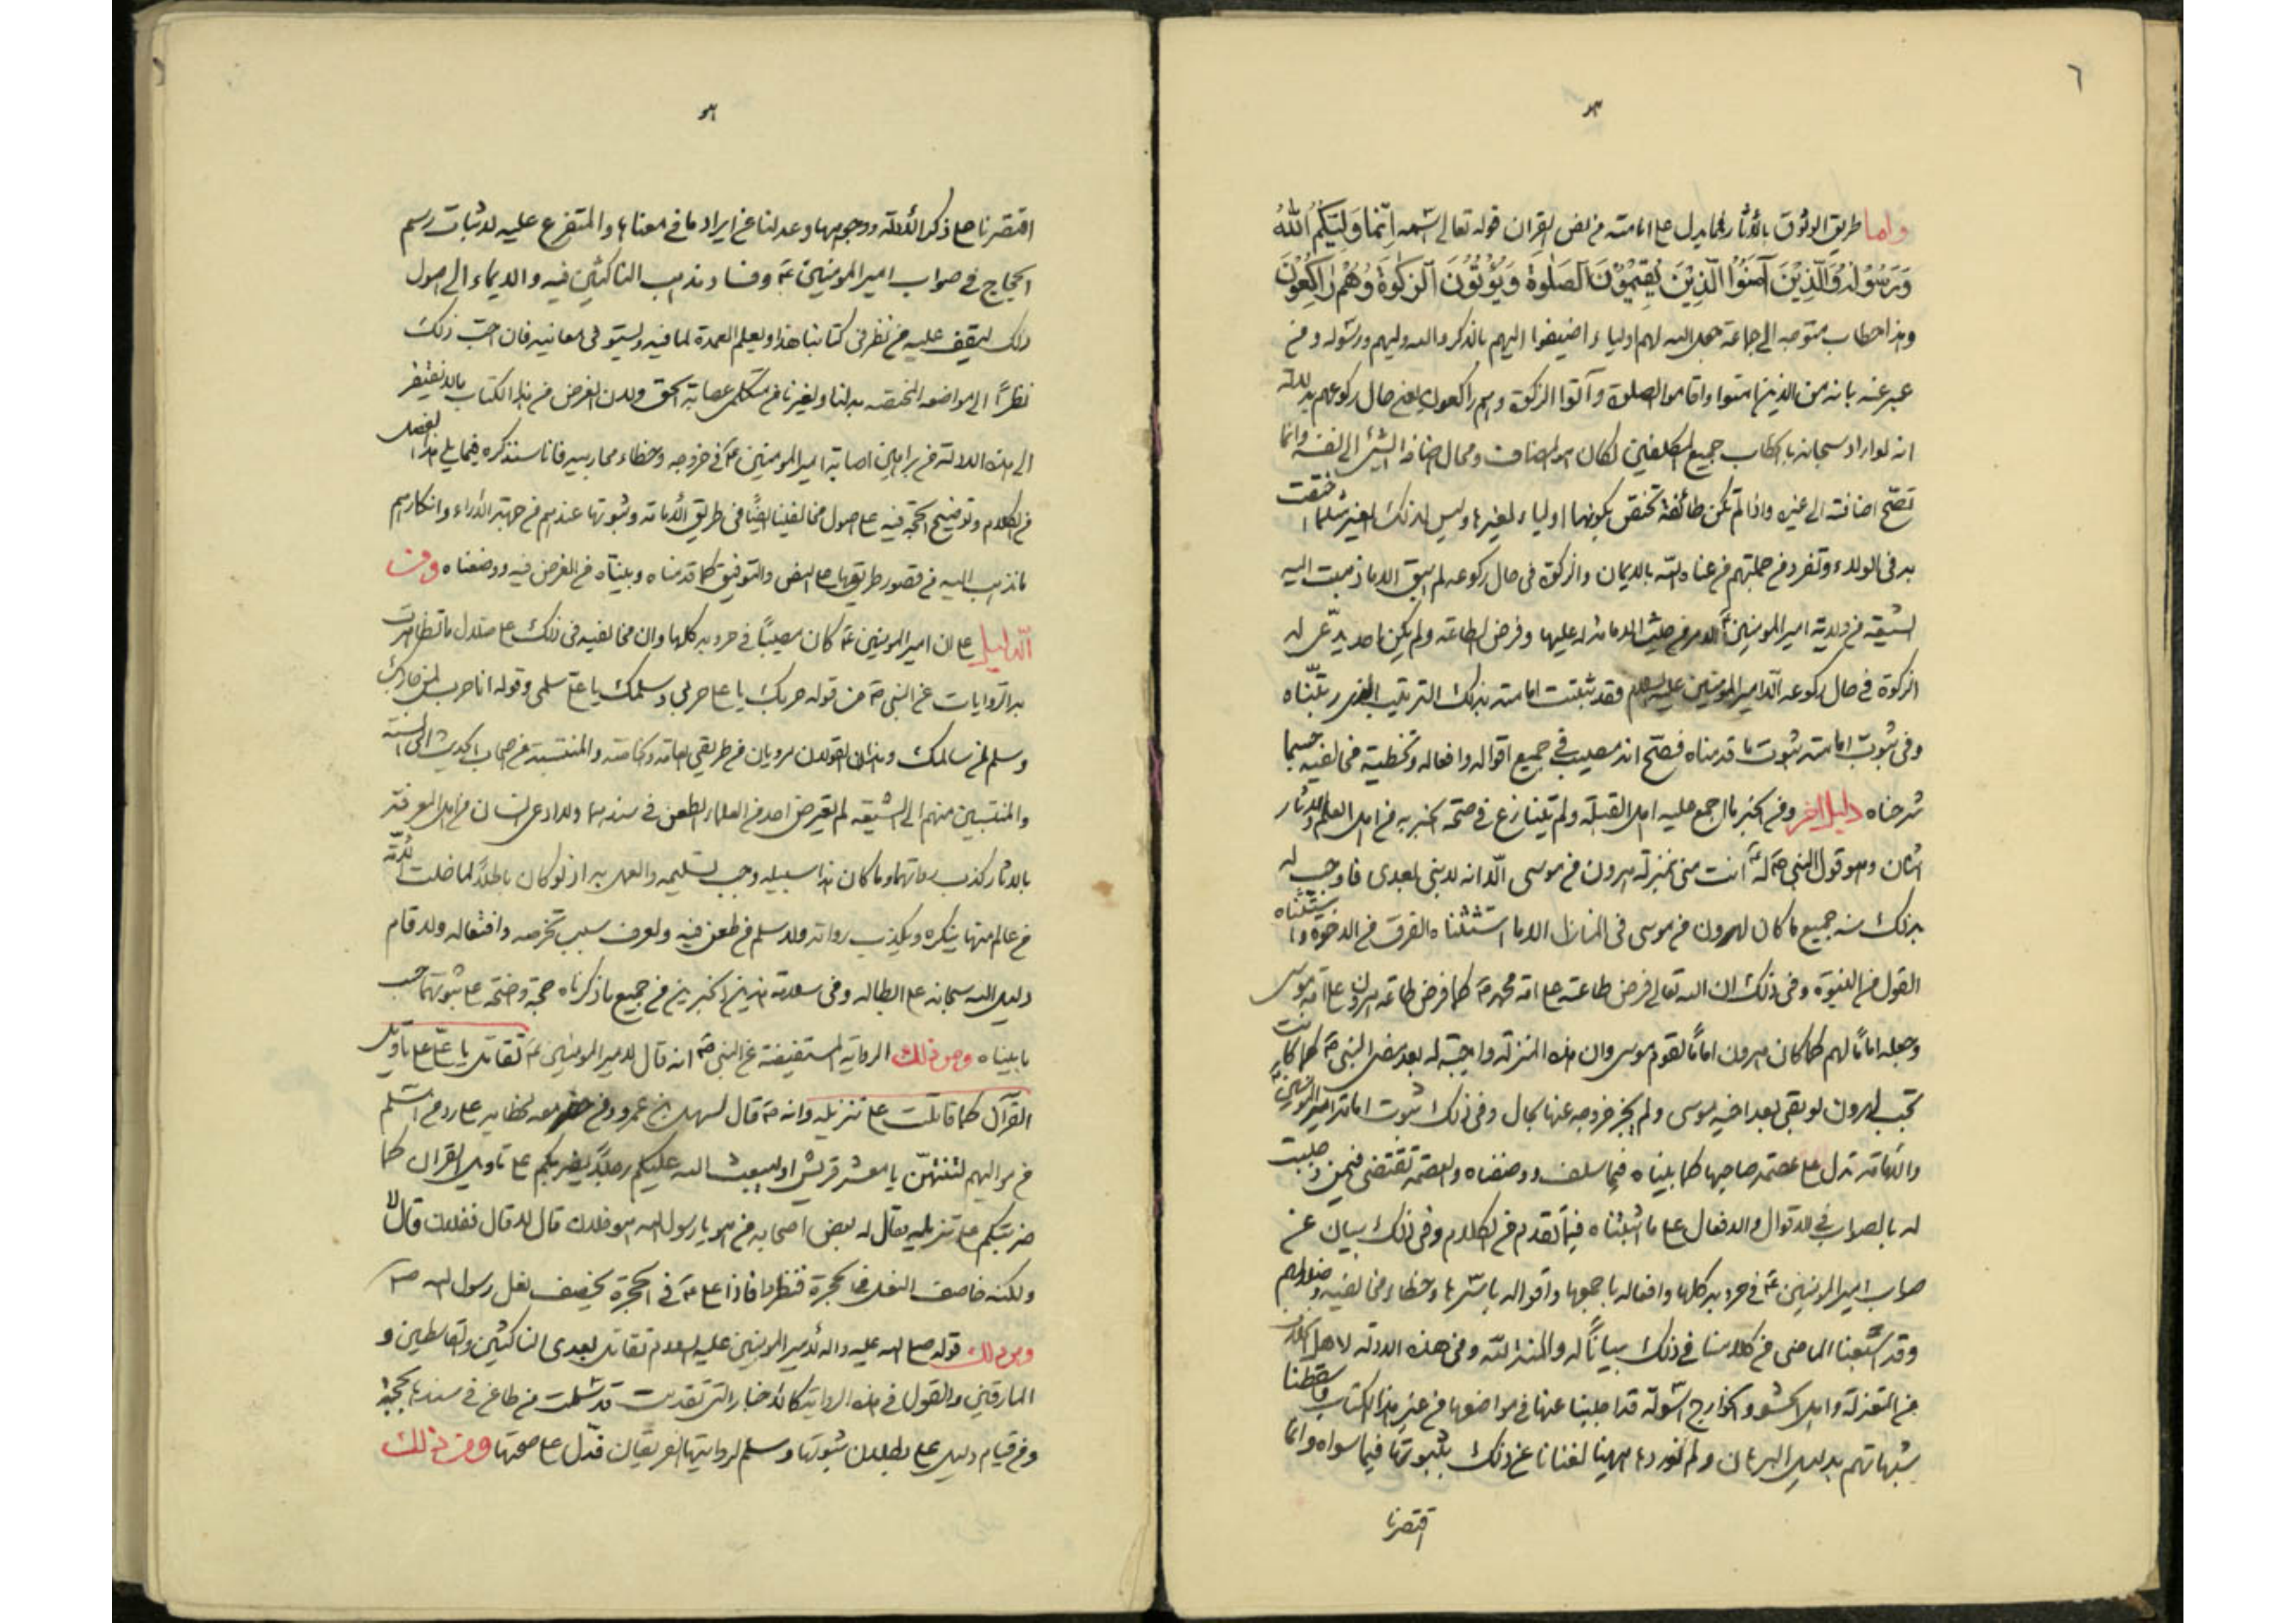 ٦
واما طريق الوثوق بالآثار فما يدل على امامته من نص القرآن قوله تعالى اسمه انما وليكم الله
ورسوله والذين آمنوا الذين يقيمون الصلوة ويؤتون الزكوة وهم راكعون
وهذا خطاب متوجه الى جماعة جعل الله لهم اولياء اضيفوا اليهم بالذكر والله وليهم ورسوله ومن
عبر عنه بانه من الذين امنوا واقاموا الصلوة وآتوا الزكوة وهم راكعون يعنى حال ركوعهم بدلالة
انه لو اراد سبحانه بالخطاب جميع المكلفين لكان هو المضاف ومحال اضافة الشئ الى نفسه وانما
تصح اضافته الى غيره واذا لم تكن طائفة تختص بكونها اولياء لغيرها وليس لذلك الغير مثل ما اختصت
به فى الولاء وتفرد من جملتهم من عناه الله بالايمان والزكوة فى حال ركوعه لم يبق الا ما ذهبت اليه
الشيعة فى ولاية امير المؤمنين ع على الامة من حيث الامامة له عليها وفرض الطاعة ولم يكن احد يدعى له
الزكوة فى حال ركوعه الا امير المؤمنين عليه السلام فقد ثبتت امامته بذلك الترتيب الذى رتبناه
وفى ثبوت امامته ثبوت ما قدمناه فصح انه مصيب فى جميع اقواله وافعاله وتخطئة مخالفيه حسبما
شرحناه دليل اخر ومن الخبر ما اجمع عليه اهل القبلة ولم يتنازع فى صحة الخبر به من اهل العلم بالآثار
اثنان وهو قول النبى ص له ع انت منى بمنزلة هرون من موسى الا انه لا نبى بعدى فاوجب له
بذلك منه جميع ما كان لهرون من موسى فى المنازل الا ما استثناه الفرق من الاخوة واستثناه
القول من النبوة وفى ذلك ان الله تعالى فرض طاعته على امة محمد ص كما فرض طاعة هرون على امة موسى
وجعله اماما لهم كما كان هرون اماما لقوم موسى وان هذه المنزلة واجبة له بعد مضى النبى ص كما كانت
تجب لهرون لو بقى بعد اخيه موسى ولم يجز خروجه عنها بحال وفى ذلك ثبوت امامة امير المؤمنين ع
والامامة تدل على عصمة صاحبها كما بيناه فيما سلف ووصفناه والعصمة تقتضى فيمن وجبت
له بالصواب فى الاقوال والافعال على ما اثبتناه فيما تقدم من الكلام وفى ذلك بيان عن
صواب امير المؤمنين ع فى حروبه كلها وافعاله باجمعها واقواله باسرها وخطاء مخالفيه وضلالهم
وقد اشبعنا الماضى من كلامنا فى ذلك بيانا له والمنة لله ومن هذه الادلة لاهل الخلاف
من المعتزلة واهل الحشو والخوارج اسولة قد اجبنا عنها فى مواضعها من غير هذا الكتاب واسقطنا
شبهاتهم بدليل البرهان ولم نوردها ههنا لغنانا عن ذلك بثبوتها فيما سواه وانما
اقتصرنا
اقتصرنا على ذكر الادلة ووجوهها وعدلنا عن ايراد ما فى معناها والمتفرع عليه لاثبات رسم
الحجاج فى صواب امير المؤمنين ع وفساد مذهب الناكثين فيه والايماء الى اصول
ذلك ليقف عليه من نظر فى كتابنا هذا ويعلم العمدة لما فيه ويستوفى معانيه فان احب ذلك
نظرا الى مواضعه المختصة به لنا ولغيرنا من متكلمى عصابة الحق ولان الغرض من هذا الكتاب ما لا يفتقر
الى هذه الدلالة من براهين اصابة امير المؤمنين ع فى حروبه وخطاء محاربيه فانا سنذكره فيما يلى هذا الفصل
من الكلام وتوضيح الحجة فيه على اصول مخالفينا ايضا فى طريق الامامة وثبوتها عندهم من جهة الآراء وانكارهم
ما نذهب اليه من قصور طريقها على النص والتوفيق كما قدمناه وبيناه من الغرض فيه ووصفناه ومن
الدليل على ان امير المؤمنين ع كان مصيبا فى حروبه كلها وان مخالفيه فى ذلك على ضلال ما تظاهرت
به الروايات عن النبى ص من قوله حربك يا على حربى وسلمك يا على سلمى وقوله انا حرب لمن حاربك
وسلم لمن سالمك وهذان القولان مرويان من طريقى العامة وخاصة والمنتسبة من اصحاب الحديث الى السنة
والمنتسبين منهم الى الشيعة لم يعترض احد من العلماء الطعن فى سندهما ولا ادعى انسان من اهل المعرفة
بالآثار كذب رواتهما وما كان هذا سبيله وجب تسليمه والعمل به اذ لو كان باطلا لما خلت الامة
من عالم منها ينكره ويكذب رواته ولا سلم من طعن فيه ولعرف سبب تخرصه وافتعاله ولاقام
دليل الله سبحانه على ابطاله وفى سلامة هذين الخبرين من جميع ما ذكرناه حجة واضحة على ثبوتهما حسب
ما بيناه ومن ذلك الرواية المستفيضة عن النبى ص انه قال لامير المؤمنين ع تقاتل يا على على تاويل
القرآن كما قاتلت على تنزيله وانه ص قال لسهيل بن عمرو ومن حضر معه لخطابه على رد من اسلم
من مواليهم لتنتهن يا معشر قريش او ليبعث الله عليكم رجلا يضربكم على تاويل القرآن كما
ضربتكم على تنزيله فقال له بعض اصحابه من هو يا رسول الله هو فلان قال لا قال ففلان قال لا
ولكنه خاصف النعل فى الحجرة فنظروا فاذا على ع فى الحجرة يخصف نعل رسول الله ص
ومن ذلك قوله صلى الله عليه واله لامير المؤمنين عليه السلام تقاتل بعدى الناكثين والقاسطين و
المارقين والقول فى هذه الرواية كالاخبار التى تقدمت قد سلمت من طاعن فى سندها بحجة
ومن قيام دليل على بطلان ثبوتها وسلم لروايتها الفريقان فدل على صحتها ومن ذلك